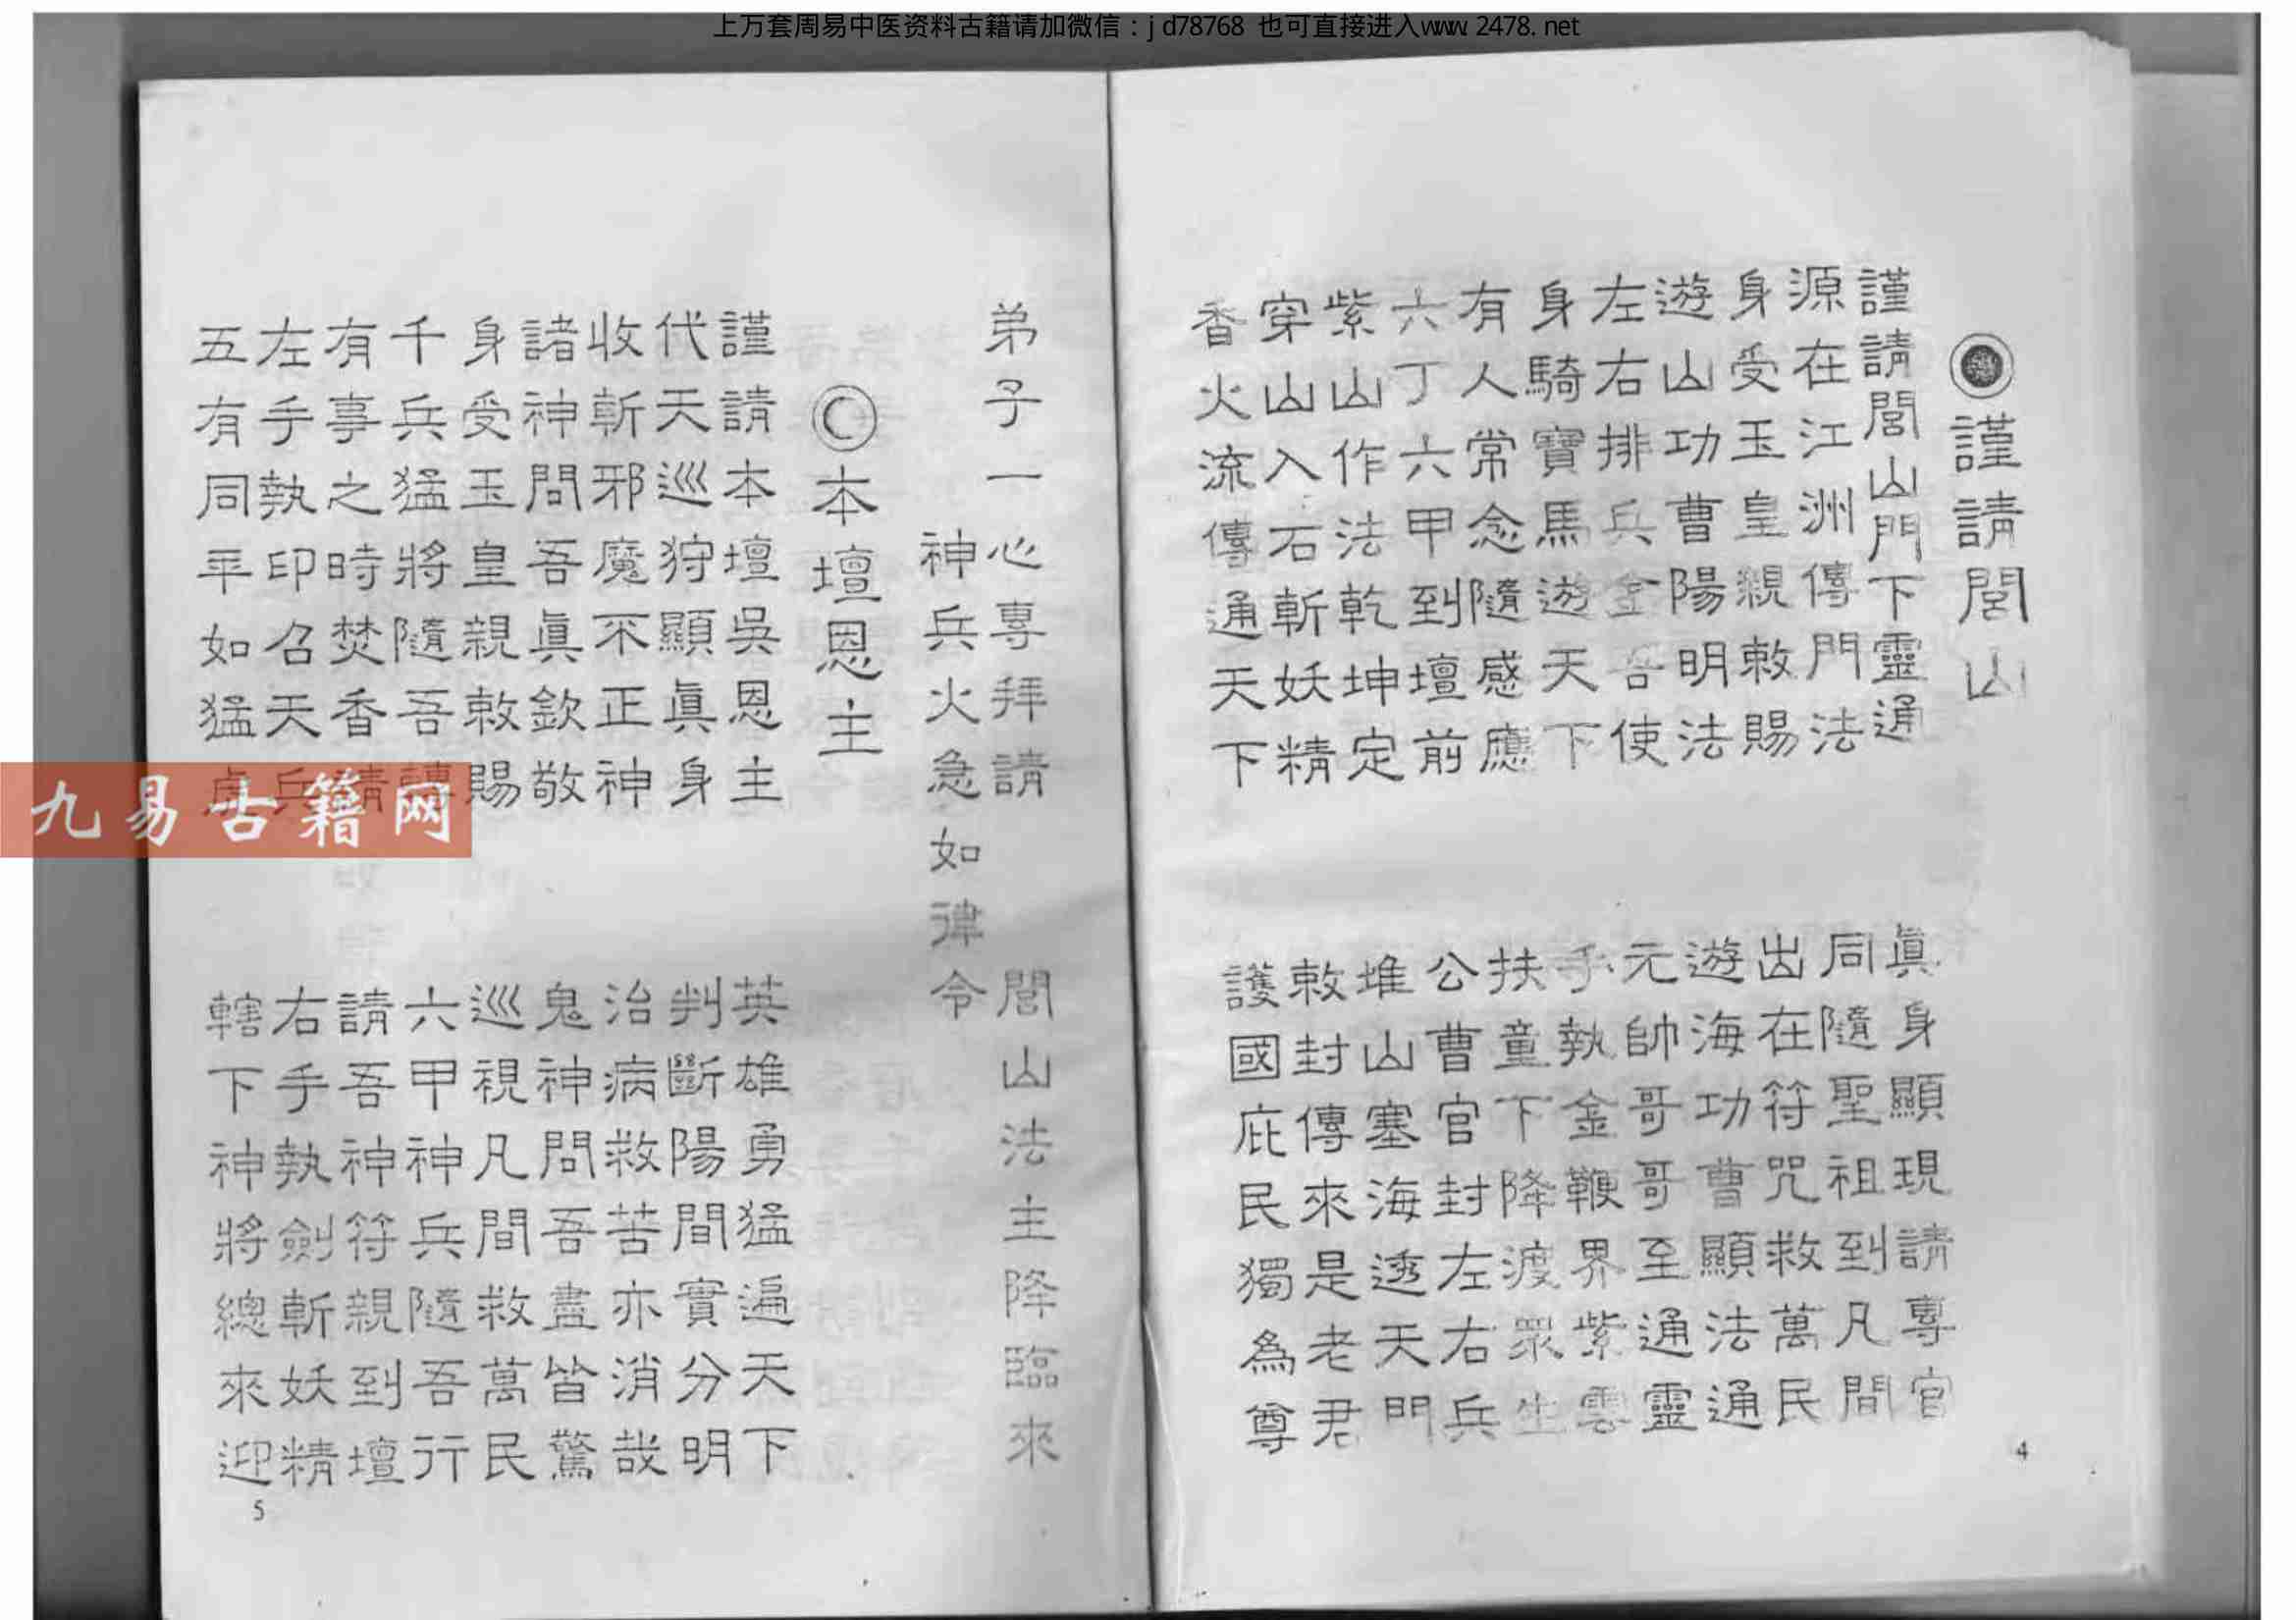 上万套周易中医资料古籍请加微信：jd78768 也可直接进入www.2478.net
謹請閭山
謹請閭山門下靈通 眞身顯現請專官
源在江洲傳門法 同隨聖祖到凡間
身受玉皇親敕賜 出在符咒救萬民
遊山功曹陽明法 遊海功曹顯法通
左右排兵全吾使 元帥哥哥至通靈
身騎寶馬遊天下 手執金鞭界紫雲
有人常念隨感應 扶童下降渡眾生
六丁六甲到壇前 公曹官封左右兵
紫山作法乾坤定 堆山塞海透天門
穿山入石斬妖精 敕封傳來是老君
香火流傳通天下 護國庇民獨為尊
4
弟子一心專拜請 閭山法主降臨來
神兵火急如律令
本壇恩主
謹請本壇吳恩主 英雄勇猛遍天下
代天巡狩顯眞身 判斷陽間實分明
收斬邪魔不正神 治病救苦亦消哉
諸神問吾眞欽敬 鬼神問吾盡皆驚
身受玉皇親敕賜 巡視凡間救萬民
千兵猛將隨吾轉 六甲神兵隨吾行
有事之時焚香請 請吾神符親到壇
左手執印召天兵 右手執劍斬妖精
五有同平如猛虎 轄下神將總來迎
5
九易古籍网